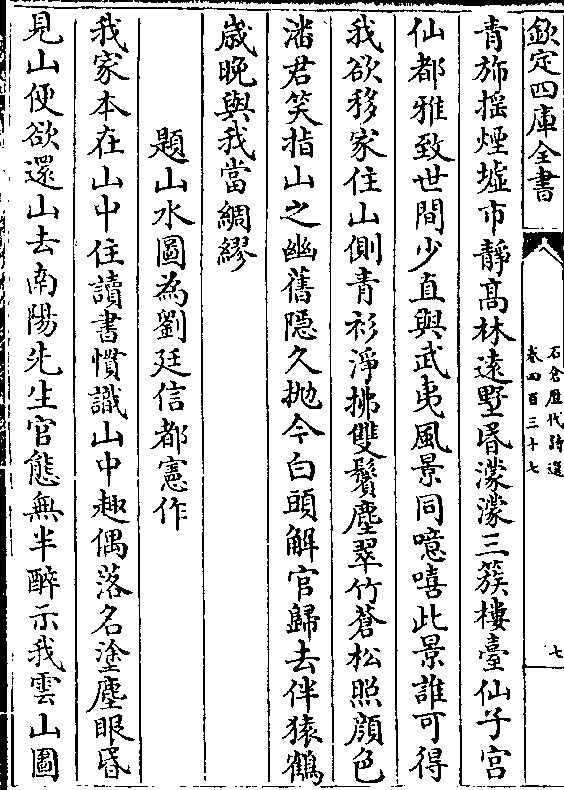 欽定四庫全書
石倉歷代詩選
卷四百三十七
七
青旆揺煙墟市静髙林逺墅昬濛濛三簇樓臺仙子宫
仙都雅致世間少直與武夷風景同噫嘻此景誰可得
我欲移家住山側青衫淨拂雙鬢塵翠竹蒼松照顔色
潘君笑指山之幽舊隱久抛今白頭解官歸去伴猿鶴
嵗晚與我當綢繆
題山水圖為劉廷信都憲作
我家本在山中住讀書慣識山中趣偶落名塗塵眼昬
見山便欲還山去南陽先生官態無半醉示我雲山圖